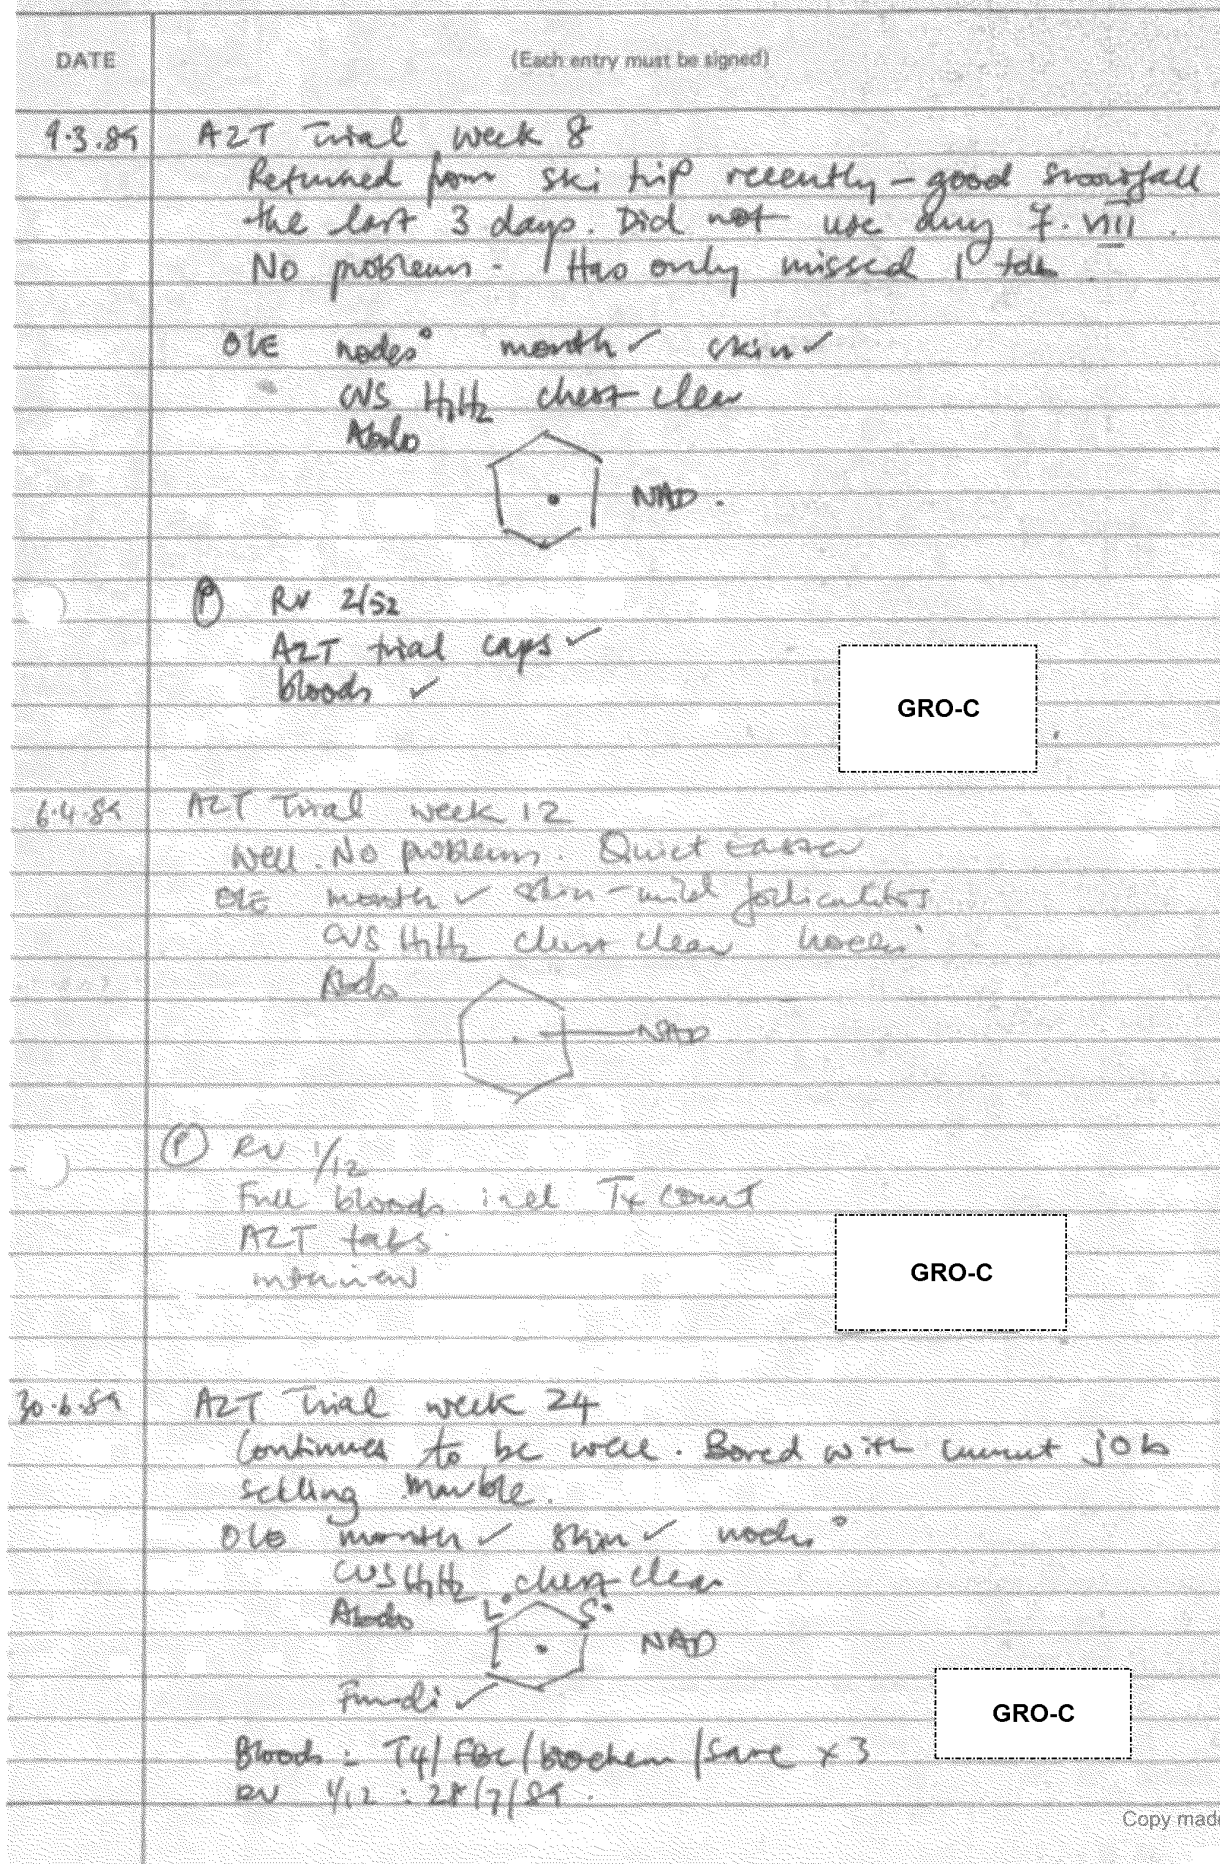 DATE
(Each entry must be signed)
9.3.89 AZT Trial week 8
Returned from ski trip recently - good snowfall
the last 3 days. Did not use any F. VIII.
No problems. Has only missed 1 tab
O/E nodes° mouth ✓ skin ✓
CVS H1H2 chest clear
Abdo
NAD.
(P) RV 2/52
AZT trial caps ✓
bloods ✓
GRO-C
6.4.89 AZT Trial week 12
Well. No problems. Quiet Easter
O/E mouth ✓ skin - mild folliculitis
CVS H1H2 chest clear nodes°
Abdo
NAD
(P) RV 1/12
Full bloods incl T4 count
AZT tabs
interview
GRO-C
30.6.89 AZT Trial week 24
Continues to be well. Bored with current job
selling marble.
O/E mouth ✓ skin ✓ nodes°
CVS H1H2 chest clear
Abdo L° S°
NAD
Fundi ✓
GRO-C
Bloods: T4/FBC/biochem/save x 3
RV 1/12 : 28/7/89.
Copy made